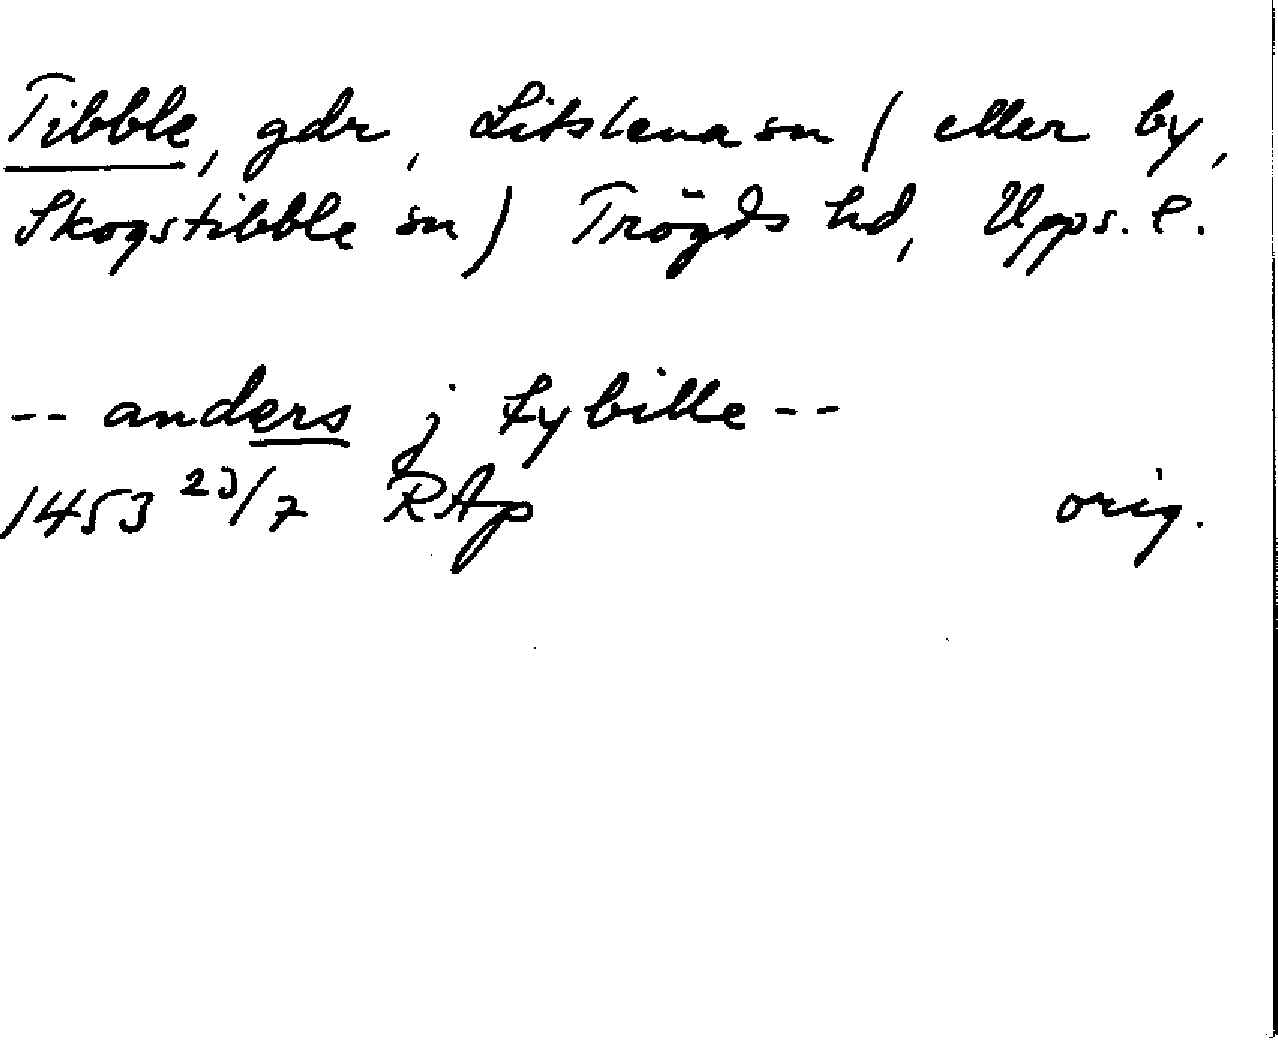 Tibble, gdr, Litslena sn ( eller by,
Skogstibble sn) Trögds hd, Upps. l.
-- anders j tybille --
1453 23/7 RAp orig.